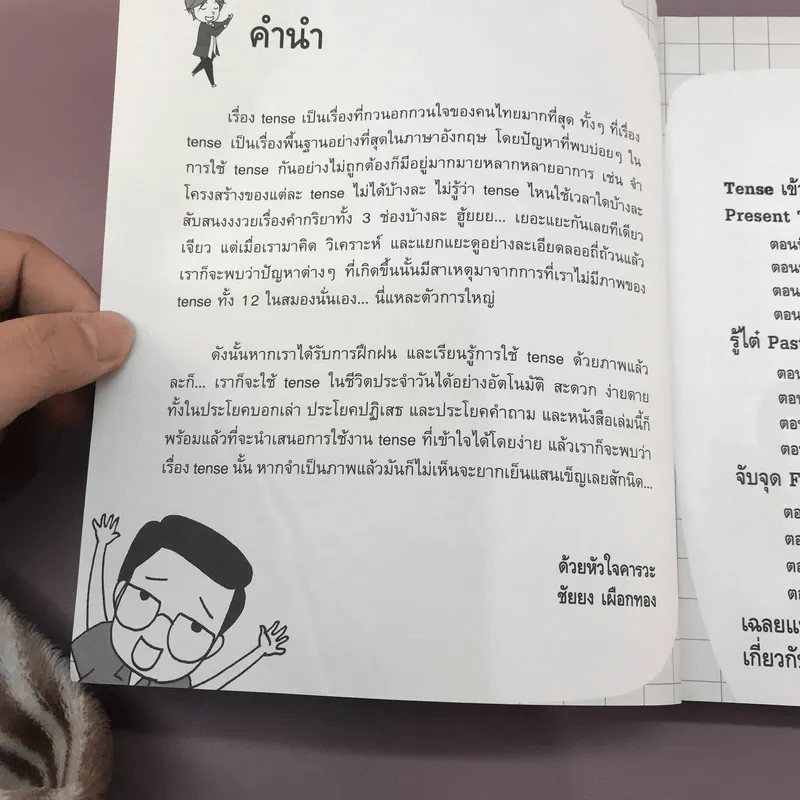 คำนำ
เรื่อง tense เป็นเรื่องที่กวนอกกวนใจของคนไทยมากที่สุด ทั้งๆ ที่เรื่อง
tense เป็นเรื่องพื้นฐานอย่างที่สุดในภาษาอังกฤษ โดยปัญหาที่พบบ่อยๆ ใน
การใช้ tense กันอย่างไม่ถูกต้องก็มีอยู่มากมายหลากหลายอาการ เช่น จำ
โครงสร้างของแต่ละ tense ไม่ได้บ้างละ ไม่รู้ว่า tense ไหนใช้เวลาใดบ้างละ
สับสนงงงวยเรื่องคำกริยาทั้ง 3 ช่องบ้างละ ฮู้ยยย... เยอะแยะกันเลยทีเดียว
เจียว แต่เมื่อเรามาคิด วิเคราะห์ และแยกแยะดูอย่างละเอียดลออถี่ถ้วนแล้ว
เราก็จะพบว่าปัญหาต่างๆ ที่เกิดขึ้นนั้นมีสาเหตุมาจากการที่เราไม่มีภาพของ
tense ทั้ง 12 ในสมองนั่นเอง... นี่แหละตัวการใหญ่
ดังนั้นหากเราได้รับการฝึกฝน และเรียนรู้การใช้ tense ด้วยภาพแล้ว
ละก็... เราก็จะใช้ tense ในชีวิตประจำวันได้อย่างอัตโนมัติ สะดวก ง่ายดาย
ทั้งในประโยคบอกเล่า ประโยคปฏิเสธ และประโยคคำถาม และหนังสือเล่มนี้ก็
พร้อมแล้วที่จะนำเสนอการใช้งาน tense ที่เข้าใจได้โดยง่าย แล้วเราก็จะพบว่า
เรื่อง tense นั้น หากจำเป็นภาพแล้วมันก็ไม่เห็นจะยากเย็นแสนเข็ญเลยสักนิด...
ด้วยหัวใจคารวะ
ชัยยง เผือกทอง
Tense เข้า
Present
ตอน
ตอน
ตอน
ตอน
รู้ไต๋ Past
ตอน
ตอน
ตอน
ตอน
จับจุด F
ตอ
ตอ
ตอ
ตอ
เฉลยแ
เกี่ยวกับ